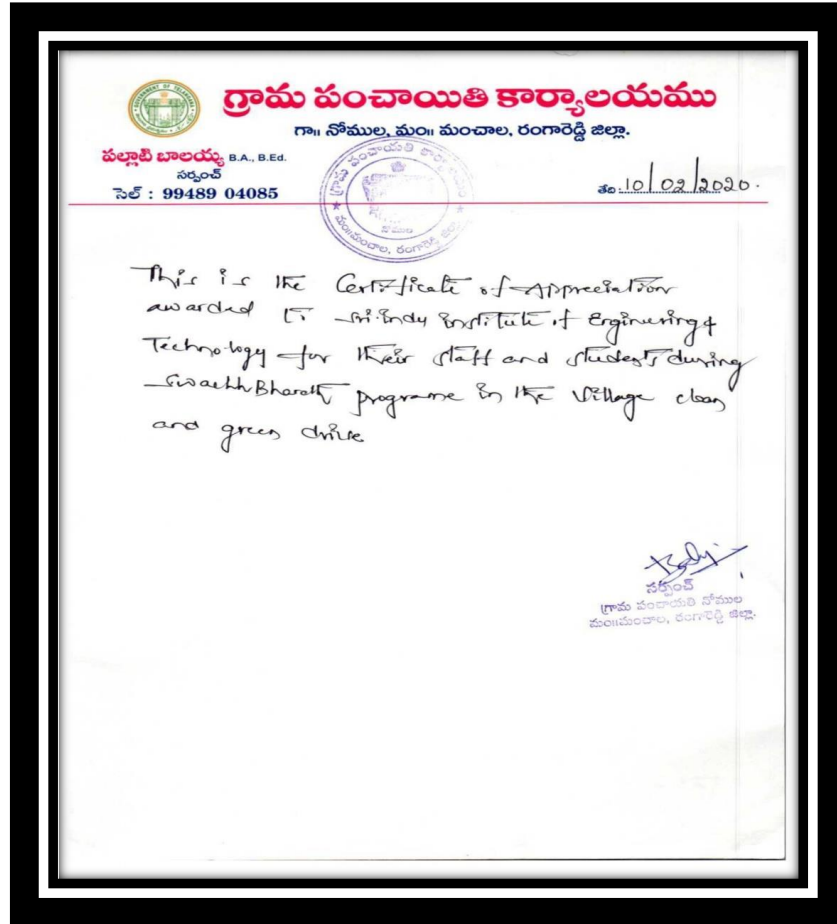 గ్రామ పంచాయితి కార్యాలయము
గా॥ నోముల, మం॥ మంచాల, రంగారెడ్డి జిల్లా.
పల్లాటి బాలయ్య B.A., B.Ed.
సర్పంచ్
సెల్ : 99489 04085
తేది: 10/02/2020.
GOVERNMENT OF TELANGANA
గ్రామ పంచాయతి కార్యాలయం
నోముల
మం॥మంచాల, రంగారెడ్డి జిల్లా
This is the Certificate of Appreciation
awarded to Sri Indu Institute of Engineering &
Technology for their staff and students during
Swachh Bharath programe in the Village clean
and green drive
సర్పంచ్
గ్రామ పంచాయతి నోముల
మం॥మంచాల, రంగారెడ్డి జిల్లా.